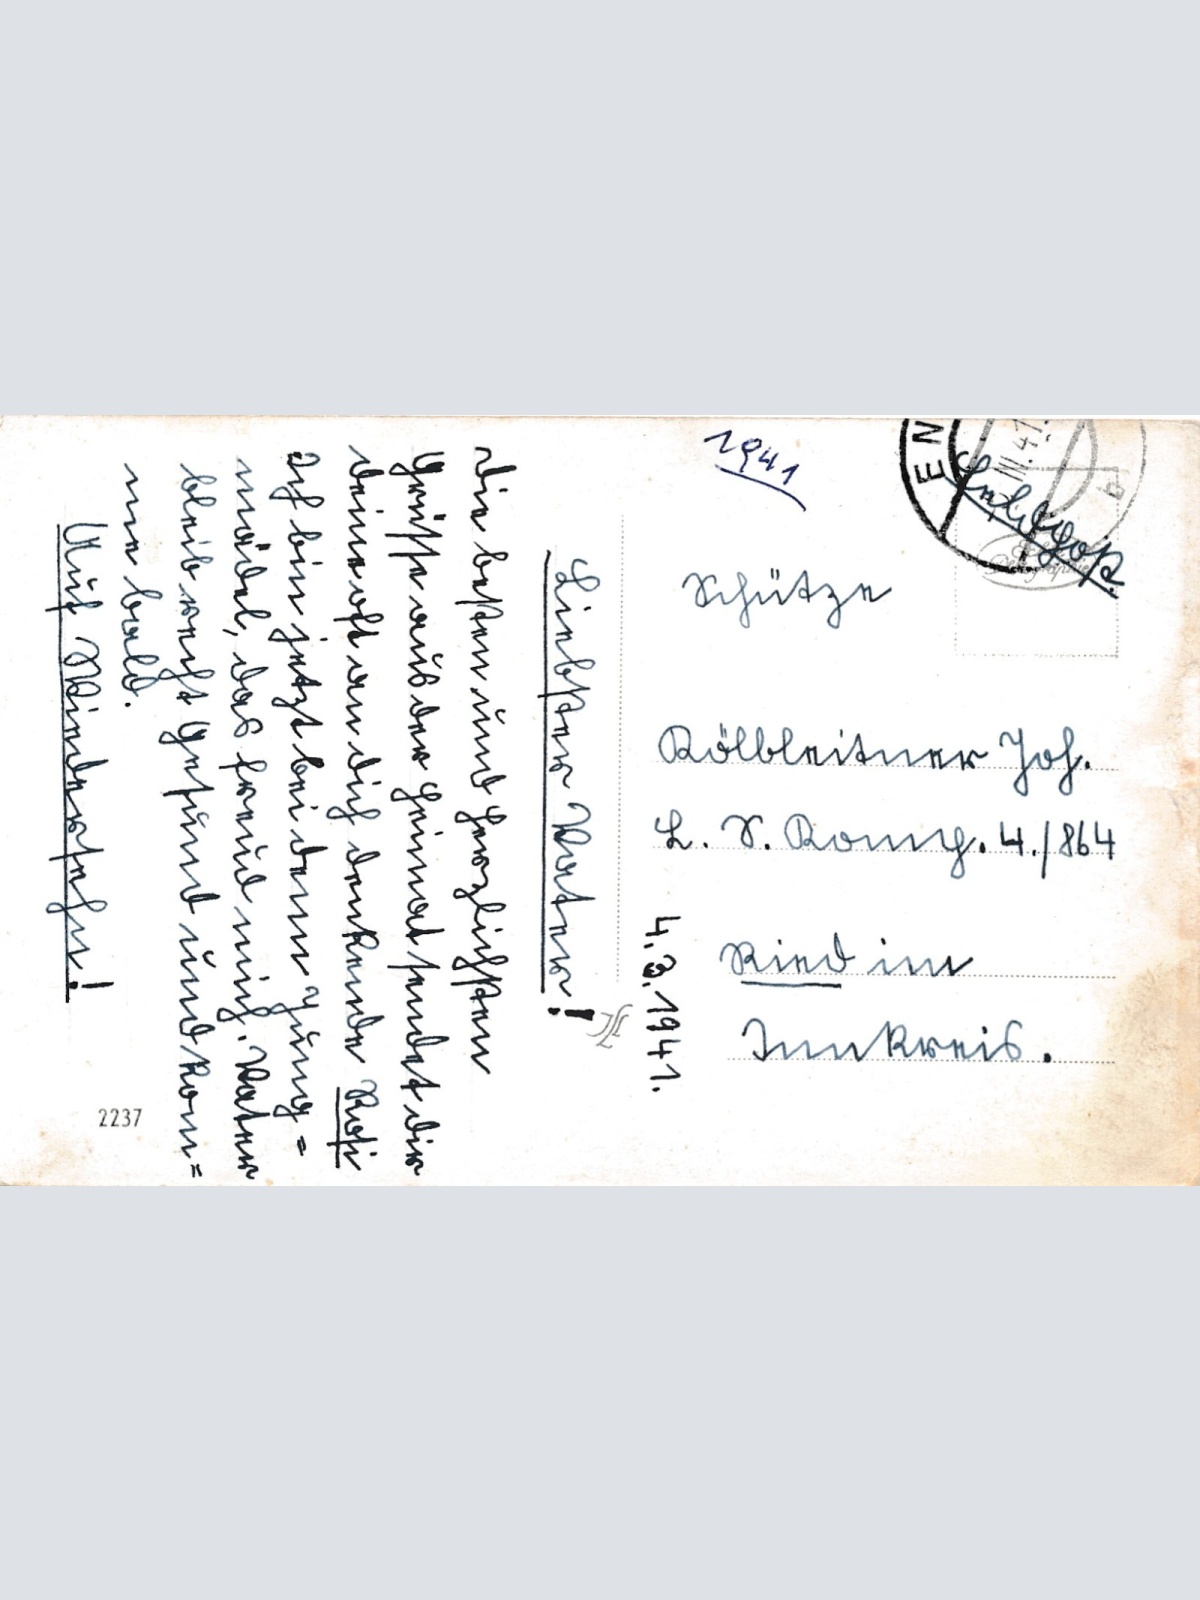 1941
EN
III.41.
b
Feldpost.
Schütze
Kölbleitner Joh.
L. S. Komp. 4./864
Ried im
Innkreis.
4.3.1941.
Liebster Vater!
Die besten und herzlichsten
Grüsse aus der Heimat sendet dir
deine oft an dich denkende Rosi
Ich bin jetzt bei dem Jung=
mädel, das freud mich. Vater
bleib recht gesund und kom=
me bald.
Auf Wiedersehn!
2237